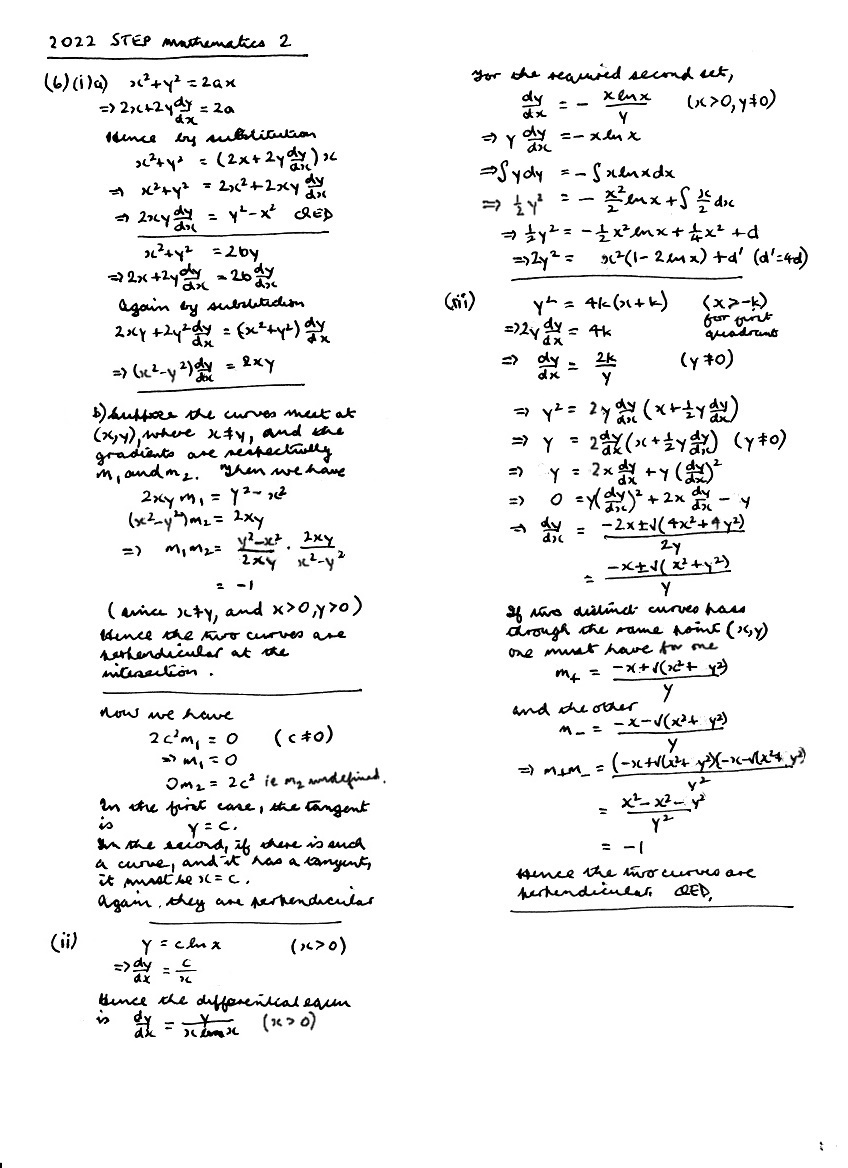 2022 STEP Mathematics 2
(6)(i)a) x²+y² = 2ax
⇒ 2x+2y dy/dx = 2a
Hence by substitution
x²+y² = (2x+2y dy/dx)x
⇒ x²+y² = 2x²+2xy dy/dx
⇒ 2xy dy/dx = y²-x² QED
x²+y² = 2by
⇒ 2x+2y dy/dx = 2b dy/dx
Again by substitution
2xy+2y² dy/dx = (x²+y²) dy/dx
⇒ (x²-y²) dy/dx = 2xy
b) Suppose the curves meet at
(x,y), where x≠y, and the
gradients are respectively
m₁ and m₂. Then we have
2xy m₁ = y²-x²
(x²-y²)m₂ = 2xy
⇒ m₁m₂ = (y²-x²)/2xy · 2xy/(x²-y²)
= -1
(since x≠y, and x>0, y>0)
Hence the two curves are
perpendicular at the
intersection.
Now we have
2c²m₁ = 0 (c≠0)
⇒ m₁ = 0
0m₂ = 2c² ie m₂ undefined.
In the first case, the tangent
is y = c.
In the second, if there is such
a curve, and it has a tangent,
it must be x = c.
Again, they are perpendicular
(ii) y = c ln x (x>0)
⇒ dy/dx = c/x
Hence the differential equn
is dy/dx = y/(x ln x) (x>0)
For the required second set,
dy/dx = - (x ln x)/y (x>0, y≠0)
⇒ y dy/dx = -x ln x
⇒ ∫y dy = -∫x ln x dx
⇒ ½y² = -x²/2 ln x + ∫ x/2 dx
⇒ ½y² = -½x² ln x + ¼x² + d
⇒ 2y² = x²(1-2 ln x) + d' (d'=4d)
(iii) y² = 4k(x+k) (x>-k)
for first
quadrant
⇒ 2y dy/dx = 4k
⇒ dy/dx = 2k/y (y≠0)
⇒ y² = 2y dy/dx (x+½y dy/dx)
⇒ y = 2 dy/dx (x+½y dy/dx) (y≠0)
⇒ y = 2x dy/dx + y(dy/dx)²
⇒ 0 = y(dy/dx)² + 2x dy/dx - y
⇒ dy/dx = (-2x±√(4x²+4y²))/2y
= (-x±√(x²+y²))/y
If two distinct curves pass
through the same point (x,y)
one must have for one
m₊ = (-x+√(x²+y²))/y
and the other
m₋ = (-x-√(x²+y²))/y
⇒ m₊m₋ = (-x+√(x²+y²))(-x-√(x²+y²))/y²
= (x²-x²-y²)/y²
= -1
Hence the two curves are
perpendicular. QED.